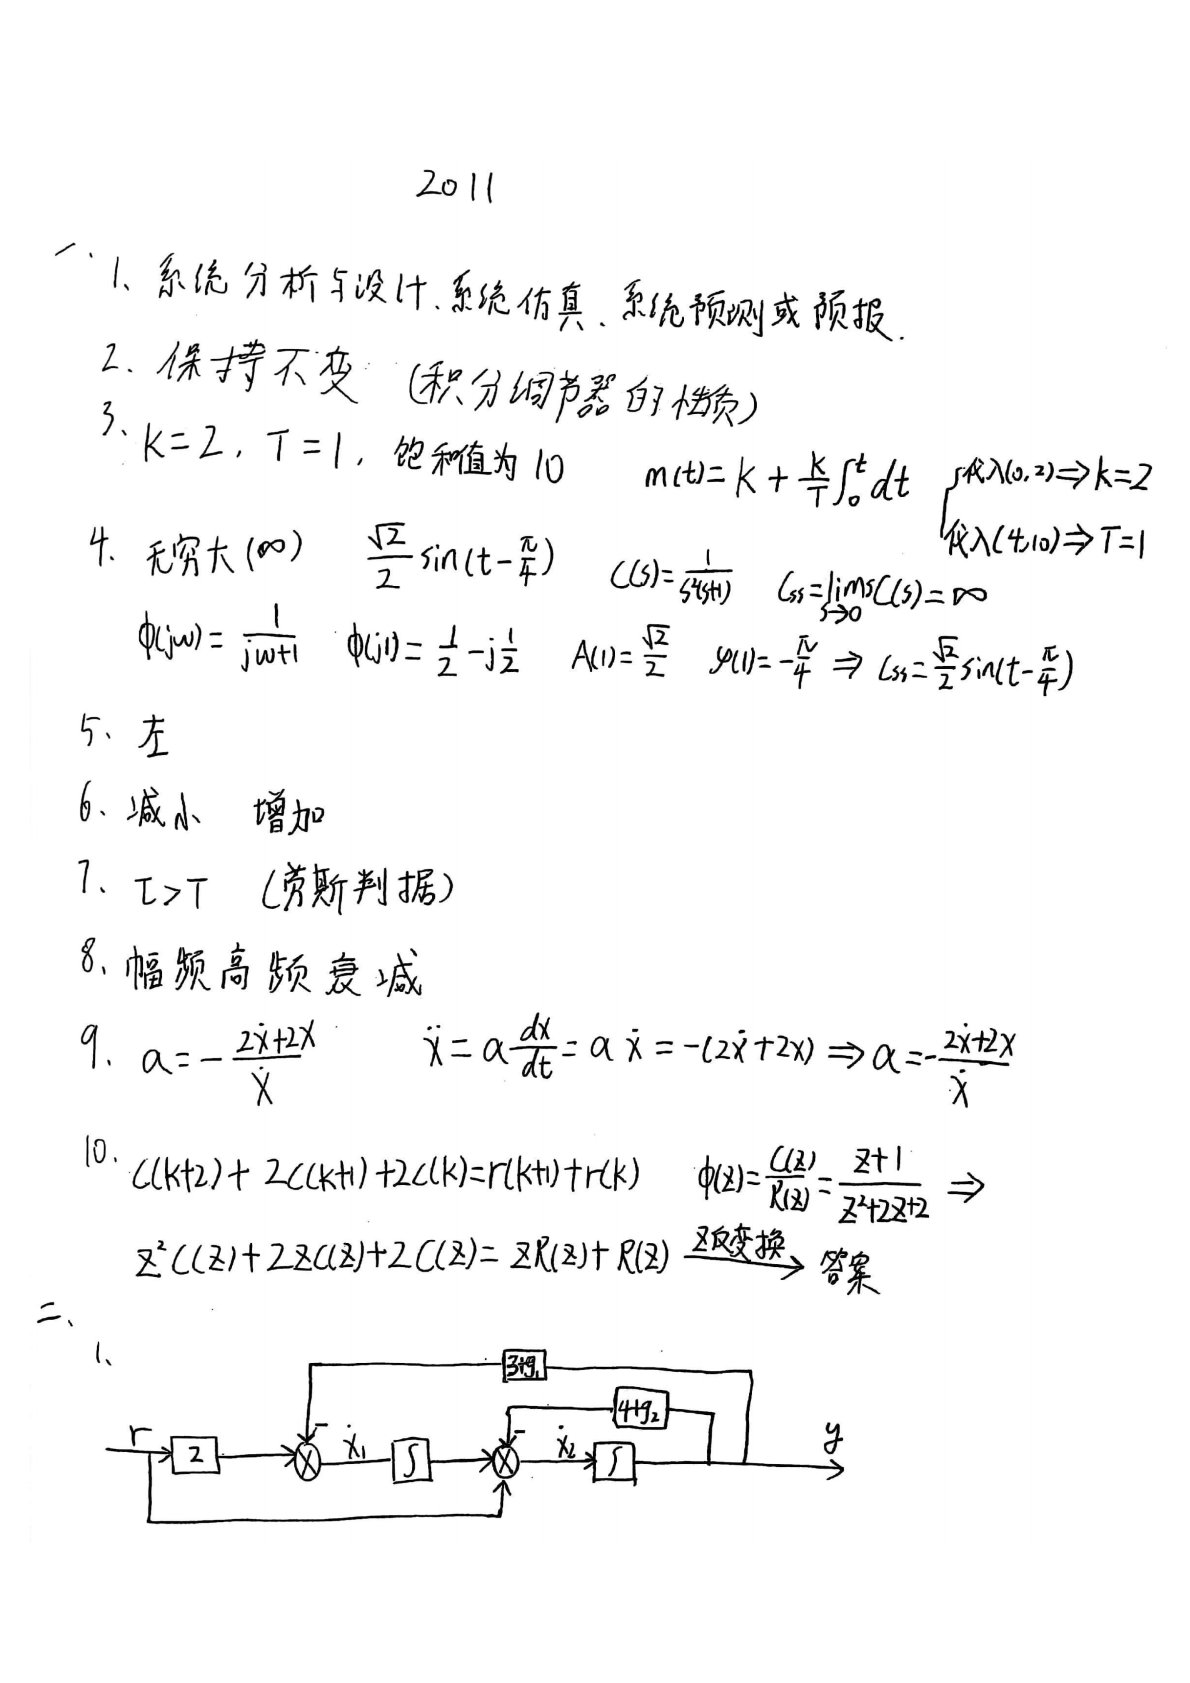 2011
一.
1、系统分析与设计、系统仿真、系统预测或预报.
2、保持不变 (积分调节器的性质)
3、K=2, T=1, 饱和值为10 m(t)=K+\frac{K}{T}∫_0^t dt {代入(0,2)⇒K=2
代入(4,10)⇒T=1
4、无穷大(∞) \frac{√2}{2}sin(t-\frac{π}{4}) C(s)=\frac{1}{s²(s+1)} Css=\lim_{s→0}sC(s)=∞
φ(jω)=\frac{1}{jω+1} φ(j1)=\frac{1}{2}-j\frac{1}{2} A(1)=\frac{√2}{2} φ(1)=-\frac{π}{4} ⇒ Css=\frac{√2}{2}sin(t-\frac{π}{4})
5、左
6、减小 增加
7、τ>T (劳斯判据)
8、幅频高频衰减
9、α=-\frac{2ẋ+2x}{ẋ} ẍ=α\frac{dx}{dt}=αẋ=-(2ẋ+2x)⇒α=-\frac{2ẋ+2x}{ẋ}
10、C(k+2)+2C(k+1)+2C(k)=r(k+1)+r(k) φ(z)=\frac{C(z)}{R(z)}=\frac{z+1}{z²+2z+2} ⇒
z²C(z)+2zC(z)+2C(z)=zR(z)+R(z) z反变换→ 答案
二、
1、
3+g₁
4+g₂
r 2 - ẋ₁ ∫ - ẋ₂ ∫ y